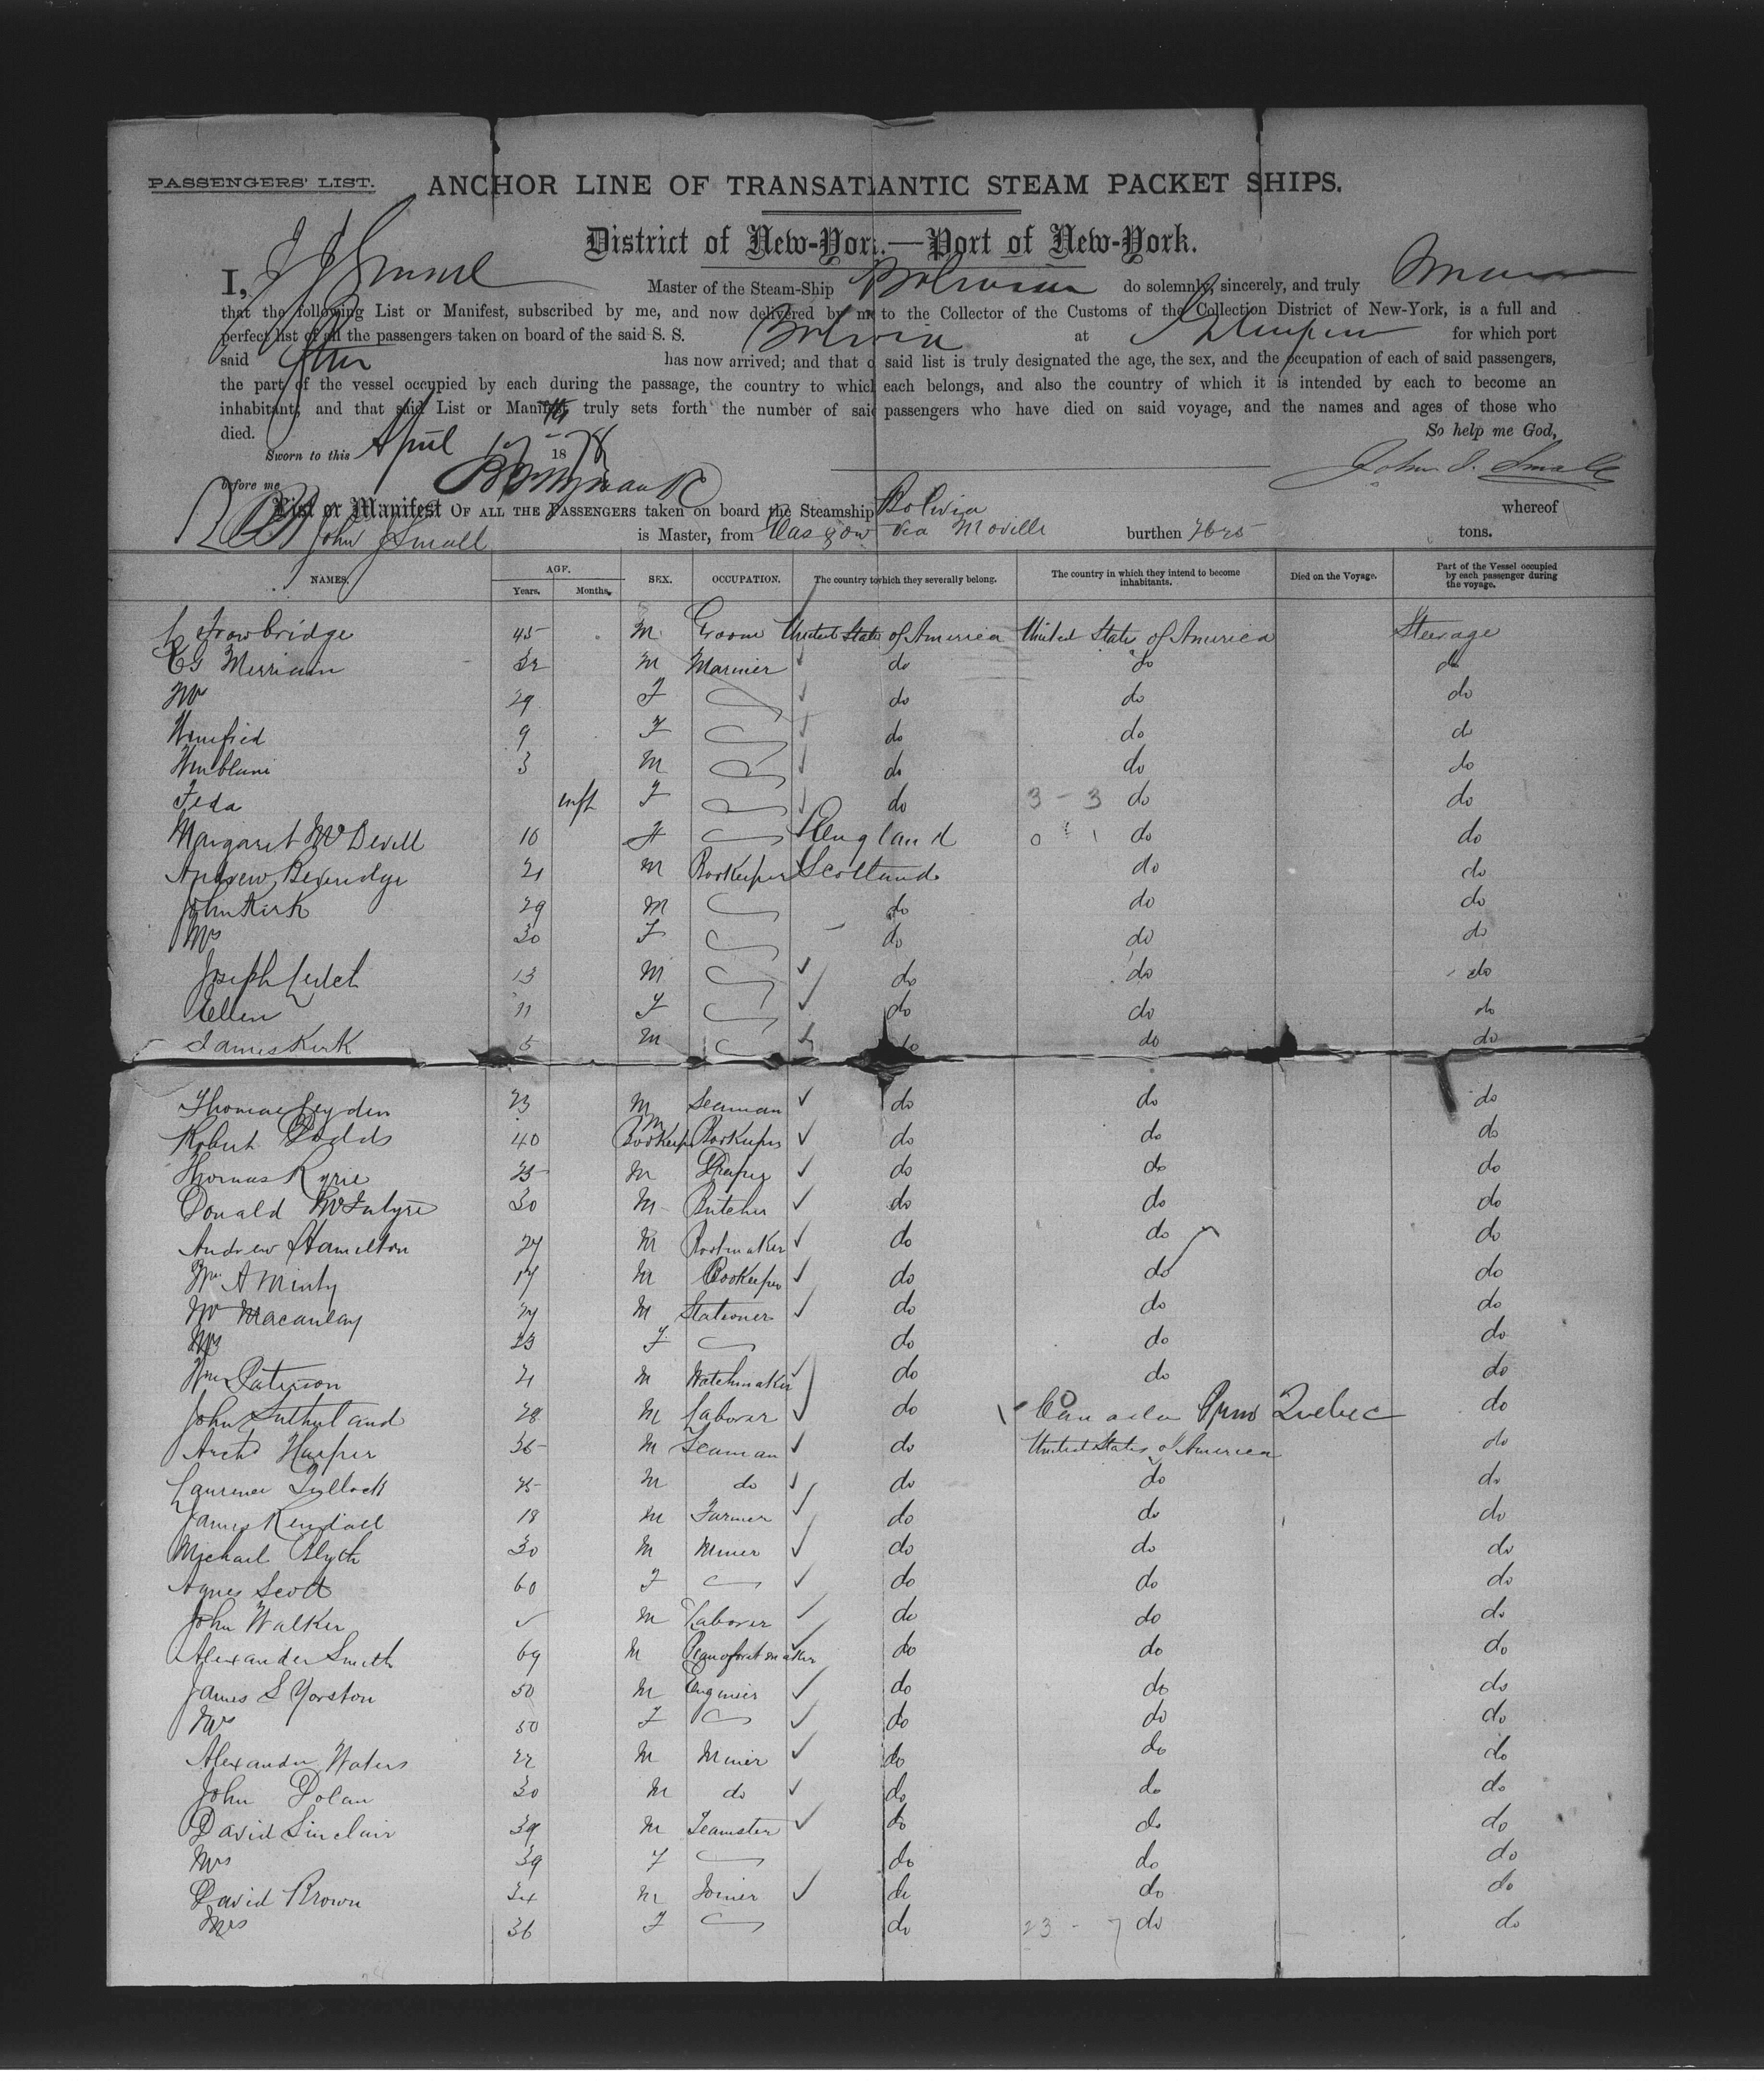 PASSENGERS' LIST. ANCHOR LINE OF TRANSATLANTIC STEAM PACKET SHIPS.
District of New-York.—Port of New-York.
I, Master of the Steam-Ship do solemnly, sincerely, and truly
that the following List or Manifest, subscribed by me, and now delivered by me to the Collector of the Customs of the Collection District of New-York, is a full and
perfect list of all the passengers taken on board of the said S. S. Bolivia at for which port
said has now arrived; and that o said list is truly designated the age, the sex, and the occupation of each of said passengers,
the part of the vessel occupied by each during the passage, the country to which each belongs, and also the country of which it is intended by each to become an
inhabitant; and that said List or Manifest truly sets forth the number of said passengers who have died on said voyage, and the names and ages of those who
died. So help me God,
Sworn to this April 17th 1878 John J. Small
before me
List or Manifest OF ALL THE PASSENGERS taken on board the Steamship Bolivia whereof
John J Small is Master, from Glasgow via Moville burthen tons.
NAMES. AGE. Years. Months. SEX. OCCUPATION. The country to which they severally belong. The country in which they intend to become inhabitants. Died on the Voyage. Part of the Vessel occupied by each passenger during the voyage.
Trowbridge 45 M Groom United States of America United States of America Steerage
Merriam 32 M Mariner do do do
Mrs 29 F do do do
Winifred 9 F do do do
3 M do do do
Feda inft F do 3 - 3 do do
Margaret McDevill 16 F England 0 1 do do
Andrew Beveridge 21 M Bookeeper Scotland do do
John Kirk 29 M do do do
Mrs 30 F do do do
Joseph 13 M do do do
Ellen 11 F do do do
James Kirk 5 M do do do
Thomas Leyden 23 M Seaman do do do
Robert Dodds 40 M Bookeeper Bookeeper do do do
Thomas Kyrie 25 M Draper do do do
Donald McIntyre 30 M Butcher do do do
Andrew Hamilton 27 M Bootmaker do do do
Wm A Minty 17 M Bookeeper do do do
W Macaulay 27 M Stationer do do do
Mrs 23 F do do do
Wm Paterson 21 M Watchmaker do do do
John Sutherland 28 M Laborer do Canada Quebec do
Archd Harper 35 M Seaman do United States of America do
Laurence Tullock 25 M do do do do
James Kendall 18 M Farmer do do do
Michael Blyth 30 M Miner do do do
Agnes Scott 60 F do do do
John Walker M Laborer do do do
Alexander Smith 69 M Pianofortmaker do do do
James S Yorston 50 M Engineer do do do
Mrs 50 F do do do
Alexander Waters 22 M Miner do do do
John Dolan 30 M do do do do
David Sinclair 39 M Teamster do do do
Mrs 39 F do do do
David Brown 34 M Joiner do do do
Mrs 36 F do 23 - 7 do do